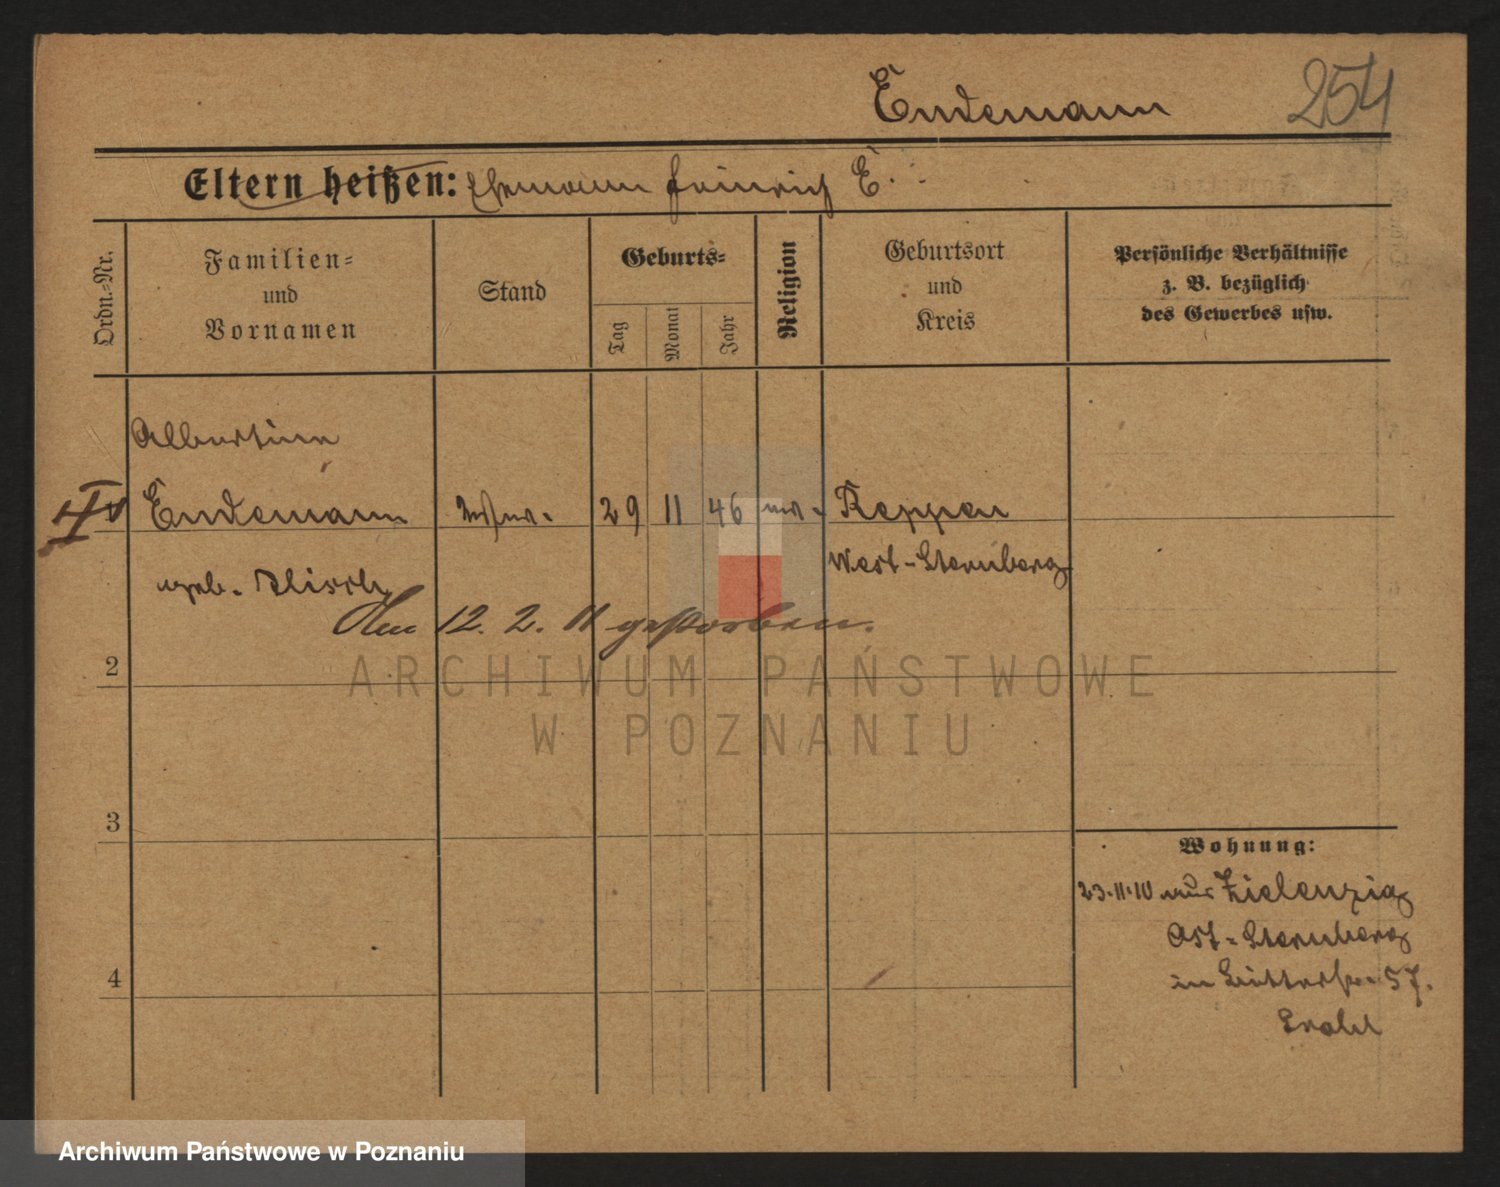 Endemann
254
Eltern heißen: Ehemann Heinrich E.
Ordn.-Nr.
Familien-
und
Vornamen
Stand
Geburts-
Tag
Monat
Jahr
Religion
Geburtsort
und
Kreis
Persönliche Verhältnisse
z. B. bezüglich
des Gewerbes usw.
Albertine
Endemann
Wwe. 29 11 46 ev. Reppen
West-Sternberg
geb.
Am 12. 2. 11 gestorben.
2
3
4
Wohnung:
23.11.10 aus Zielenzig
Ost-Sternberg
in 57.
ARCHIWUM PAŃSTWOWE
W POZNANIU
Archiwum Państwowe w Poznaniu